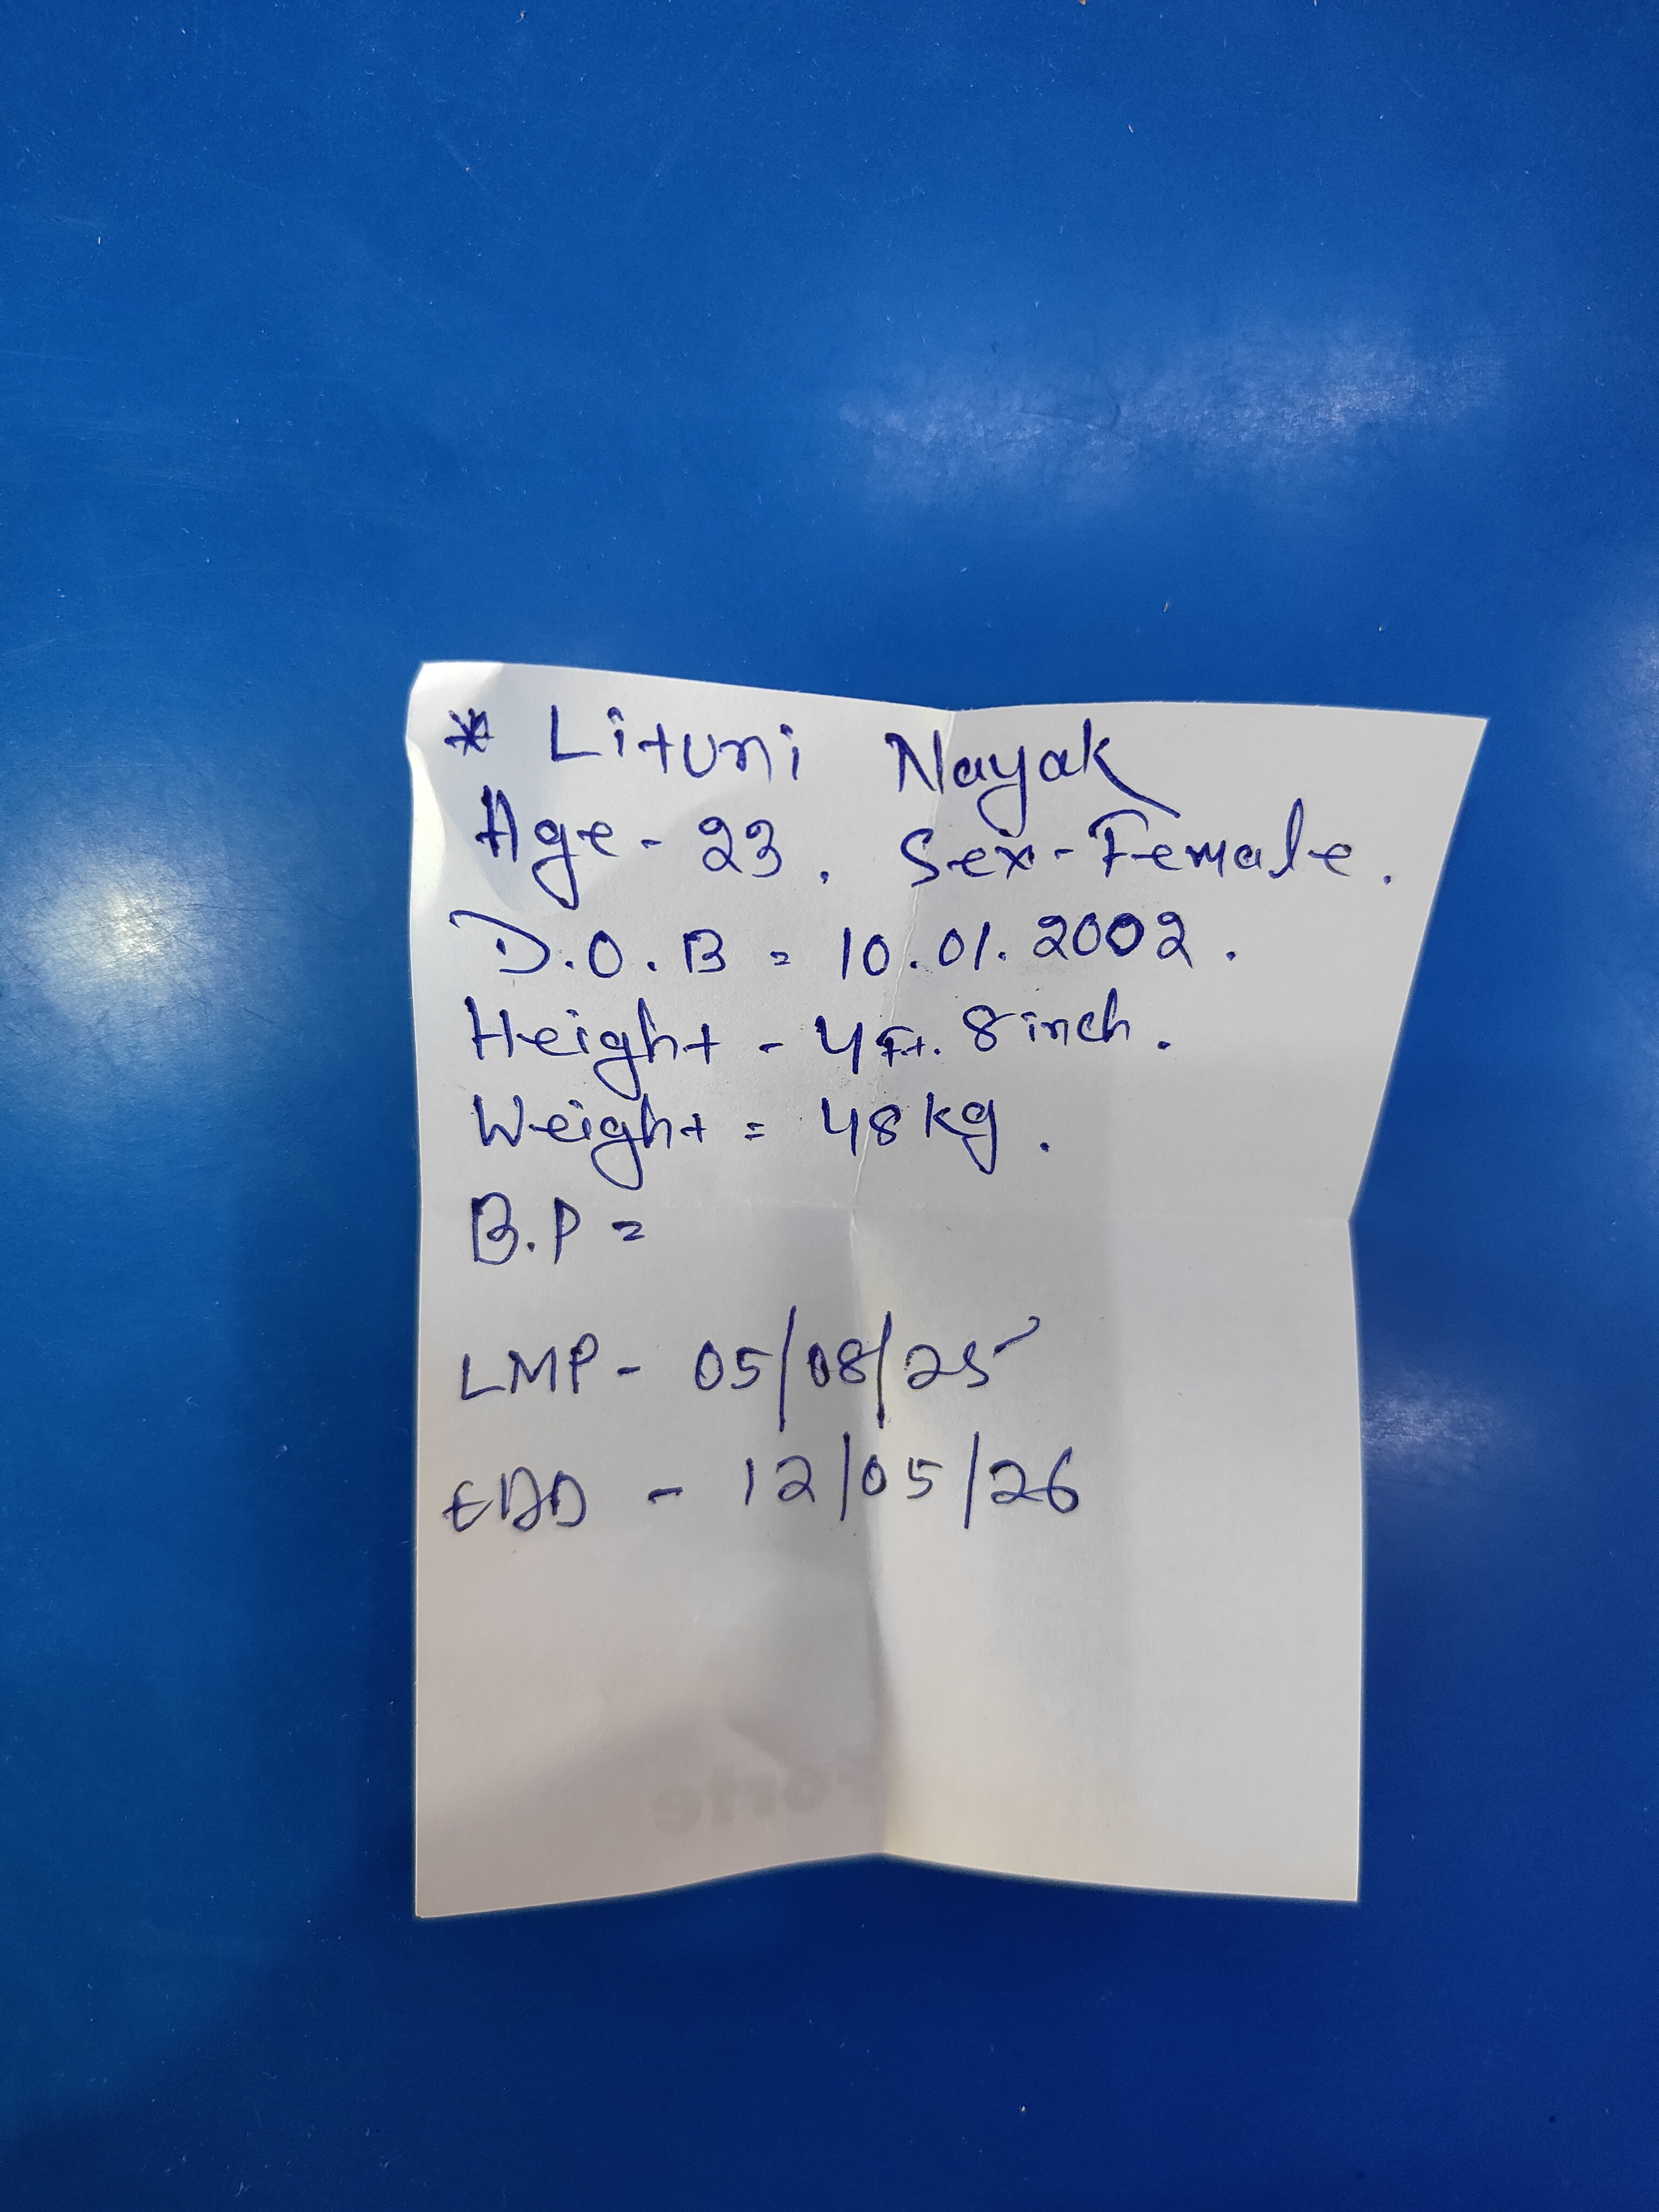 * Lituni Nayak
Age - 23. Sex - Female.
D.O.B = 10.01.2002.
Height - 4 Ft. 8 inch.
Weight = 48 kg.
B.P =
LMP - 05/08/25
EDD - 12/05/26